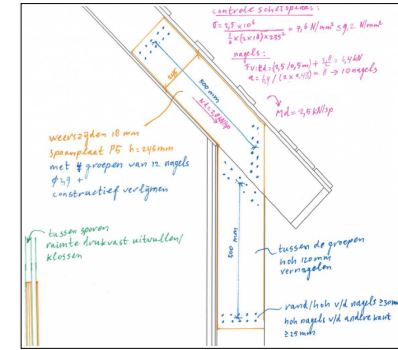 controle schetsspaan:
σ = 2,5 x 10⁶ / (1/6 x (2x18) x 235²) = 7,6 N/mm² ≤ 9,2 N/mm²
nagels:
Md = 2,5 kN/sp
500 mm
weerszijden 18 mm
spaanplaat P5 h=245mm
met 4 groepen van 12 nagels
constructief verlijmen
tussen sporen
ruimte drukvast uitvullen/
klossen
500 mm
tussen de groepen
hoh 120mm
vernagelen
rand/hoh v/d nagels ≥30mm
hoh nagels v/d andere kant
≥25mm